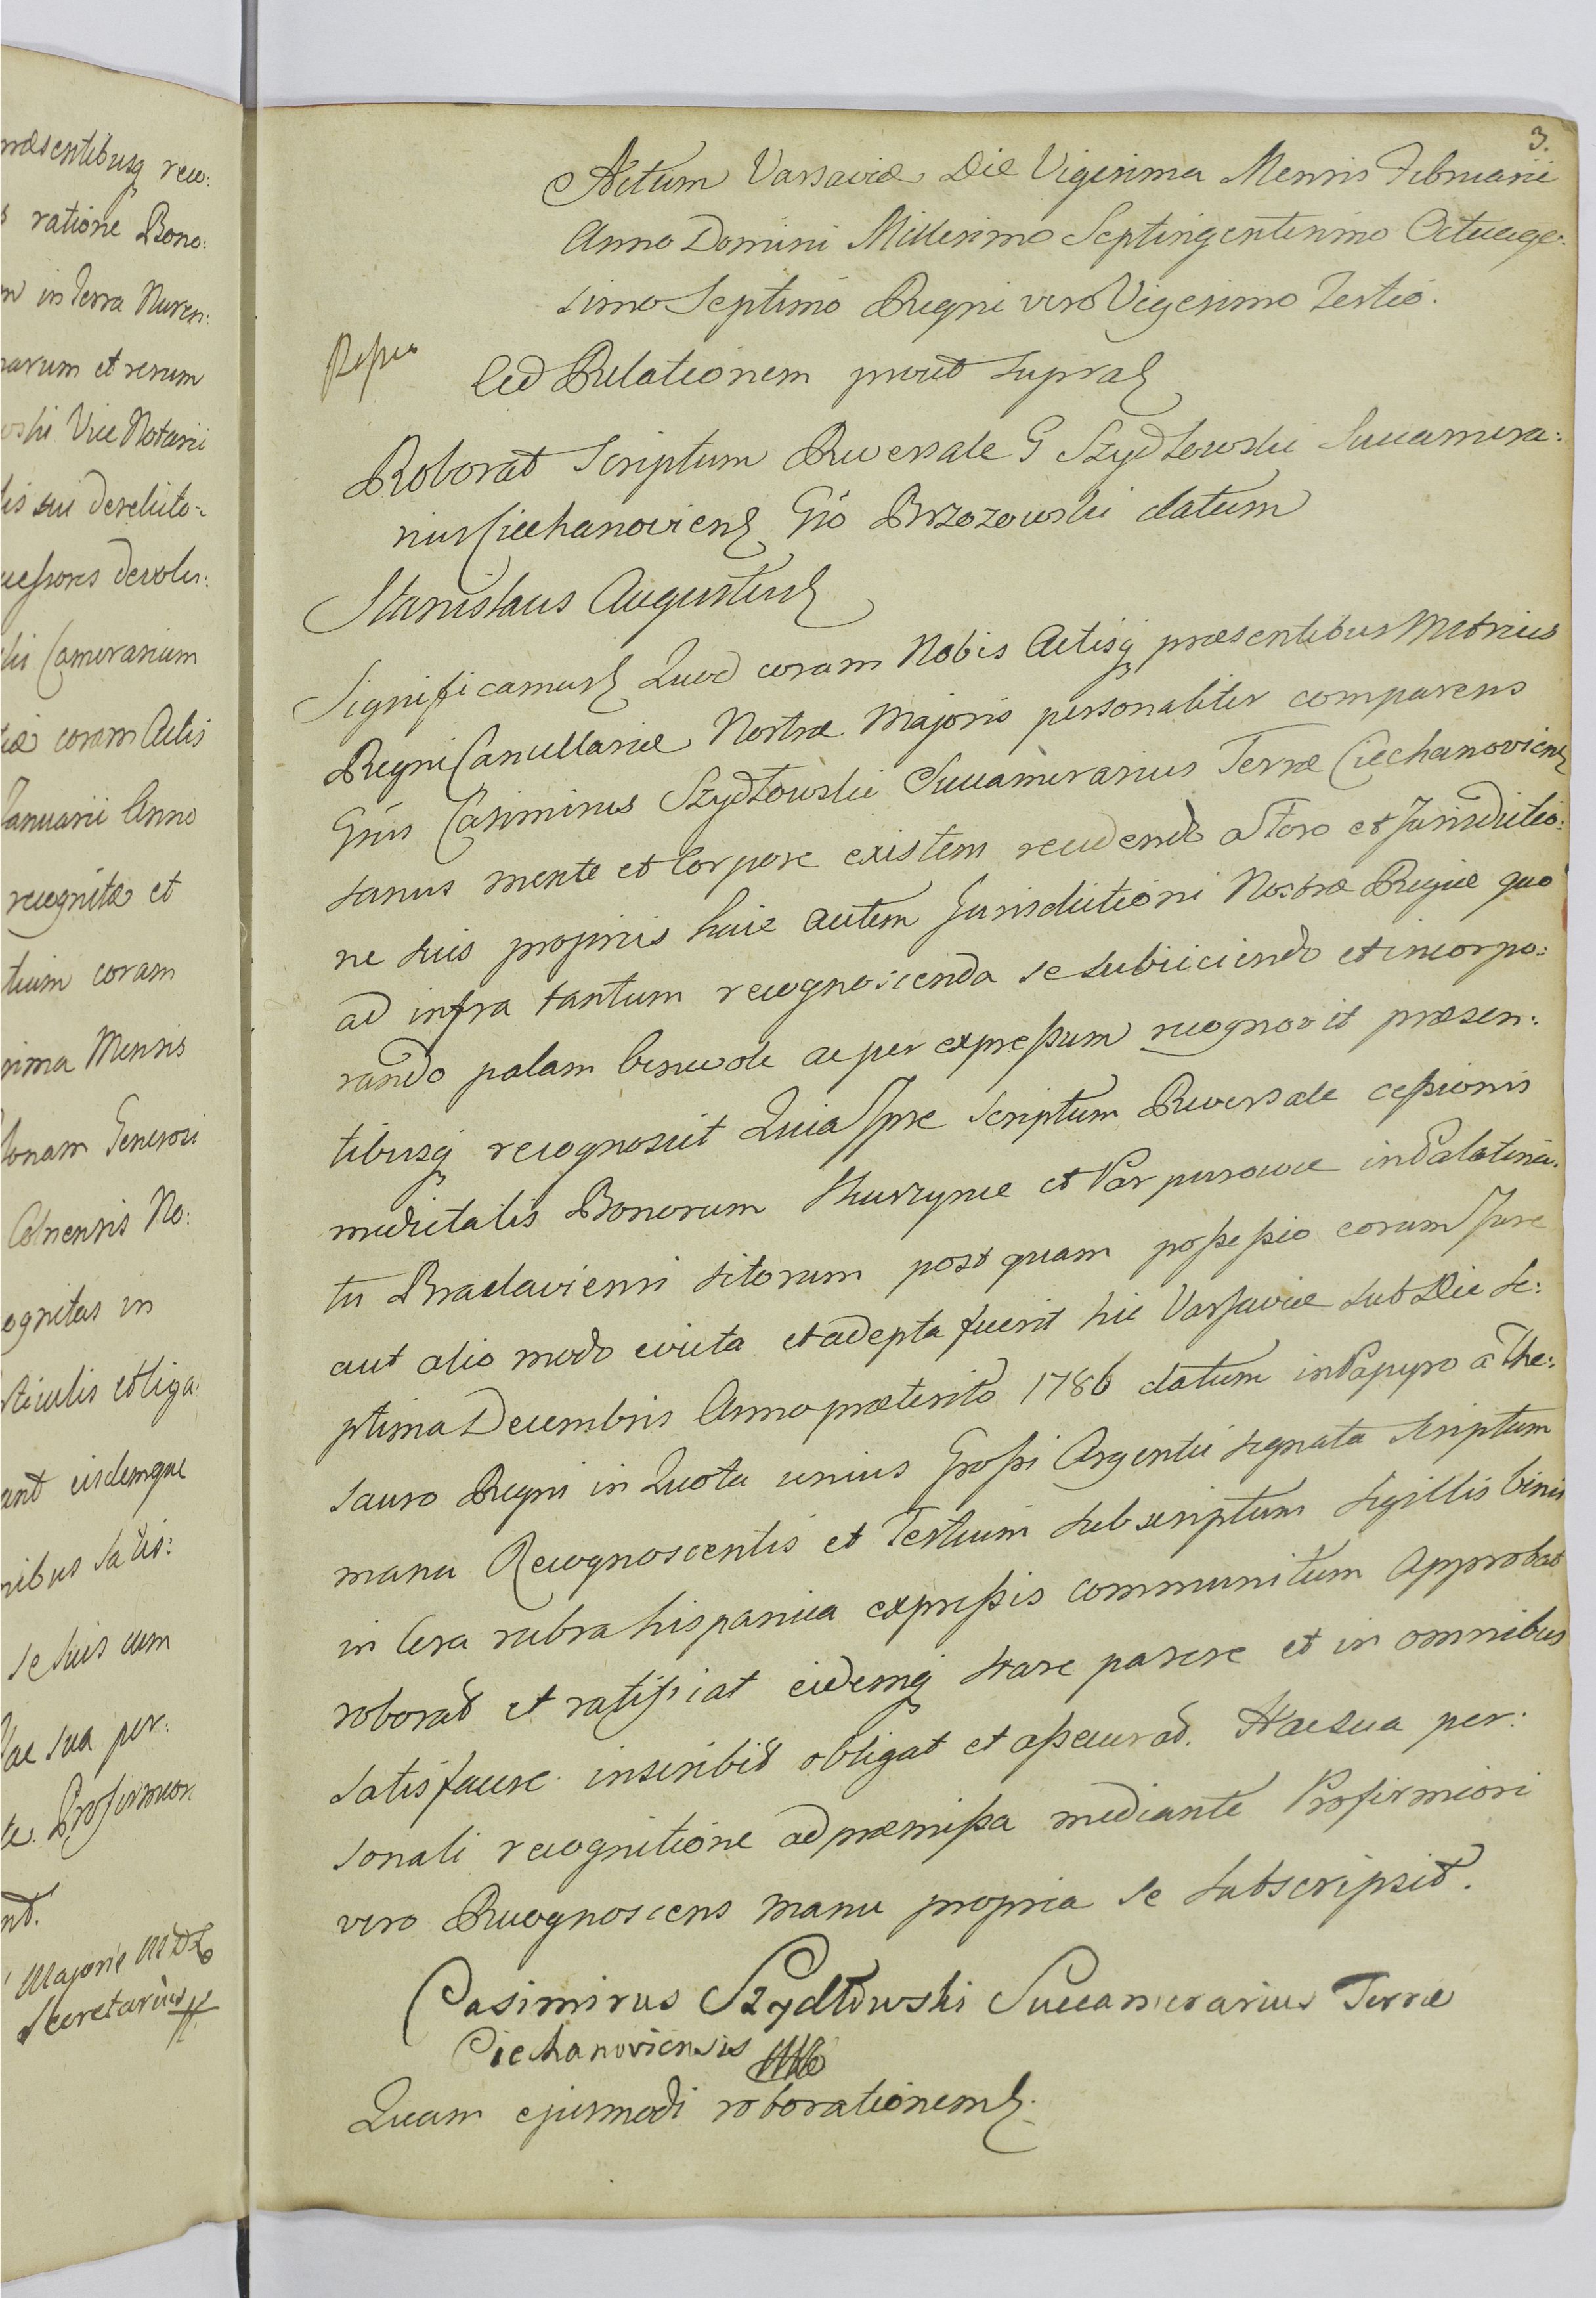 præsentibusq reco:
s ratione Bono:
m in Terra Nuren:
narum et rerum
oski Vice Notarii
lis sui derelicto:
ucessores devolu:
ski Camerarium
tiæ coram Actis
Januarii Anno
recognitæ et
tium coram
sima Mensis
Generosi
Colnensis No:
ognitas in
rticulis obliga:
ant eisdemque
nibus Satis:
se suis cum
Hac sua per:
te. Pro firmiori
nt.
Majoris MDL
Secretarius
3.
Actum Varsaviæ Die Vigesima Mensis Februarii
Anno Domini Millesimo Septingentesimo Octuage:
simo Septimo Regni vero Vigesimo Tertio.
Ad Relationem prout supra
Roborat Scriptum Reversale G Szydłowski Succamera:
rius Ciechanoviens Gso Brzozowski datum
Stanislaus Augustus
Significamus Quod coram Nobis Actisq præsentibus Metrices
Regni Cancellariæ Nostræ Majoris personaliter comparens
Gsus Casimirus Szydłowski Succamerarius Terræ Ciechanoviens
sanus mente et Corpore existens recedendo a Foro et Jurisdictio:
ne suis propriis huic autem Jurisdictioni Nostræ Regiæ quo
ad infra tantum recognoscenda se subiiciendo et incorpo:
rando palam benevole ac per expressum recognovit præsen:
tibusq recognoscit Quia Ipse Scriptum Reversale cessionis
medietatis Bonorum et Karpurowce in Palatina:
tu Braclaviensi sitorum post quam possessio eorum Jure
aut alio modo evicta et adepta fuerit hic Varsaviæ sub Die Se:
ptima Decembris Anno præterito 1786 datum in Papyro a The:
sauro Regni in Quota unius Grossi Argentei signata scriptum
manu Recognoscentis et Testium subscriptum Sigillis binis
in Cera rubra hispanica expressis communitum Approbat
roborat et ratificat eidemq stare parere et in omnibus
satisfacere inscribit obligat et assecurat. Hac sua per:
sonali recognitione ad præmissa mediante Pro firmiori
vero Recognoscens Manu propria se subscripsit.
Casimirus Szydłowski Succamerarius Terræ
Ciechanoviensis
Quam ejusmodi roborationem